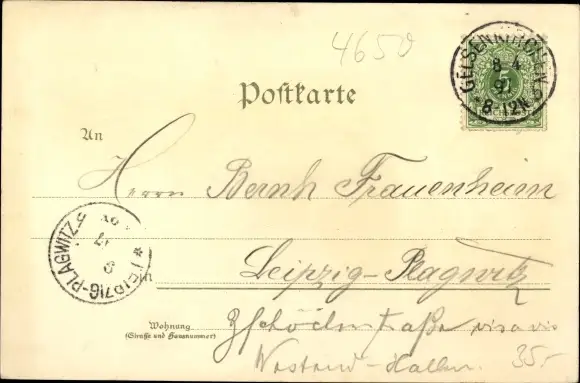 4650
GELSENKIRCHEN
8 4
8-12N
Postkarte
An
Herrn Bernh Frauenheim
LEIPZIG-PLAGWITZ
in Leipzig-Plagwitz
Wohnung
(Straße und Hausnummer)
Zschöcherstraße vis a vis
Westend-Hallen. 35.-